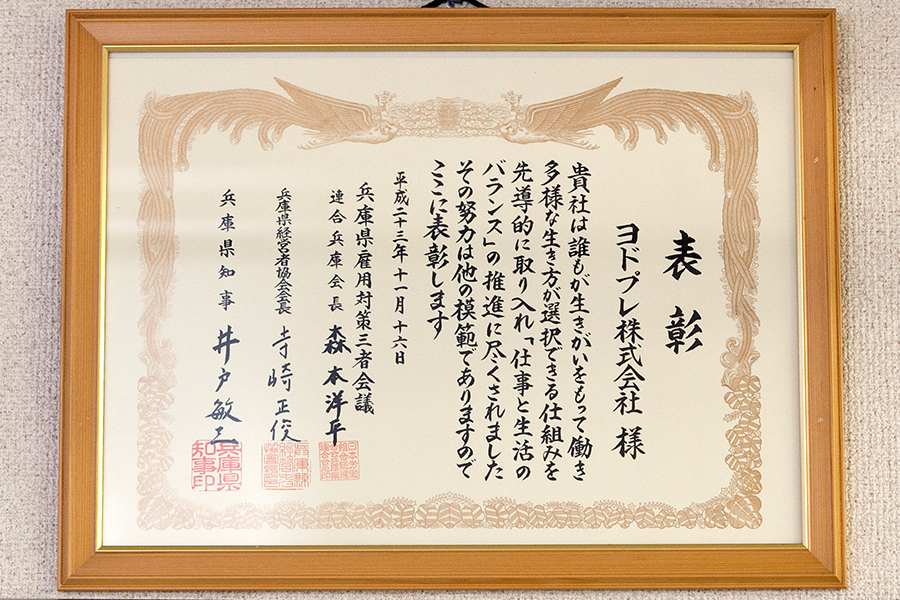 表彰
ヨドプレ株式会社 様
貴社は誰もが生きがいをもって働き
多様な生き方が選択できる仕組みを
先導的に取り入れ「仕事と生活の
バランス」の推進に尽くされました
その努力は他の模範でありますので
ここに表彰します
平成二十三年十一月十六日
兵庫県雇用対策三者会議
連合兵庫会長 森本洋平
兵庫県経営者協会会長 寺崎正俊
兵庫県知事 井戸敏三
兵庫県
知事印